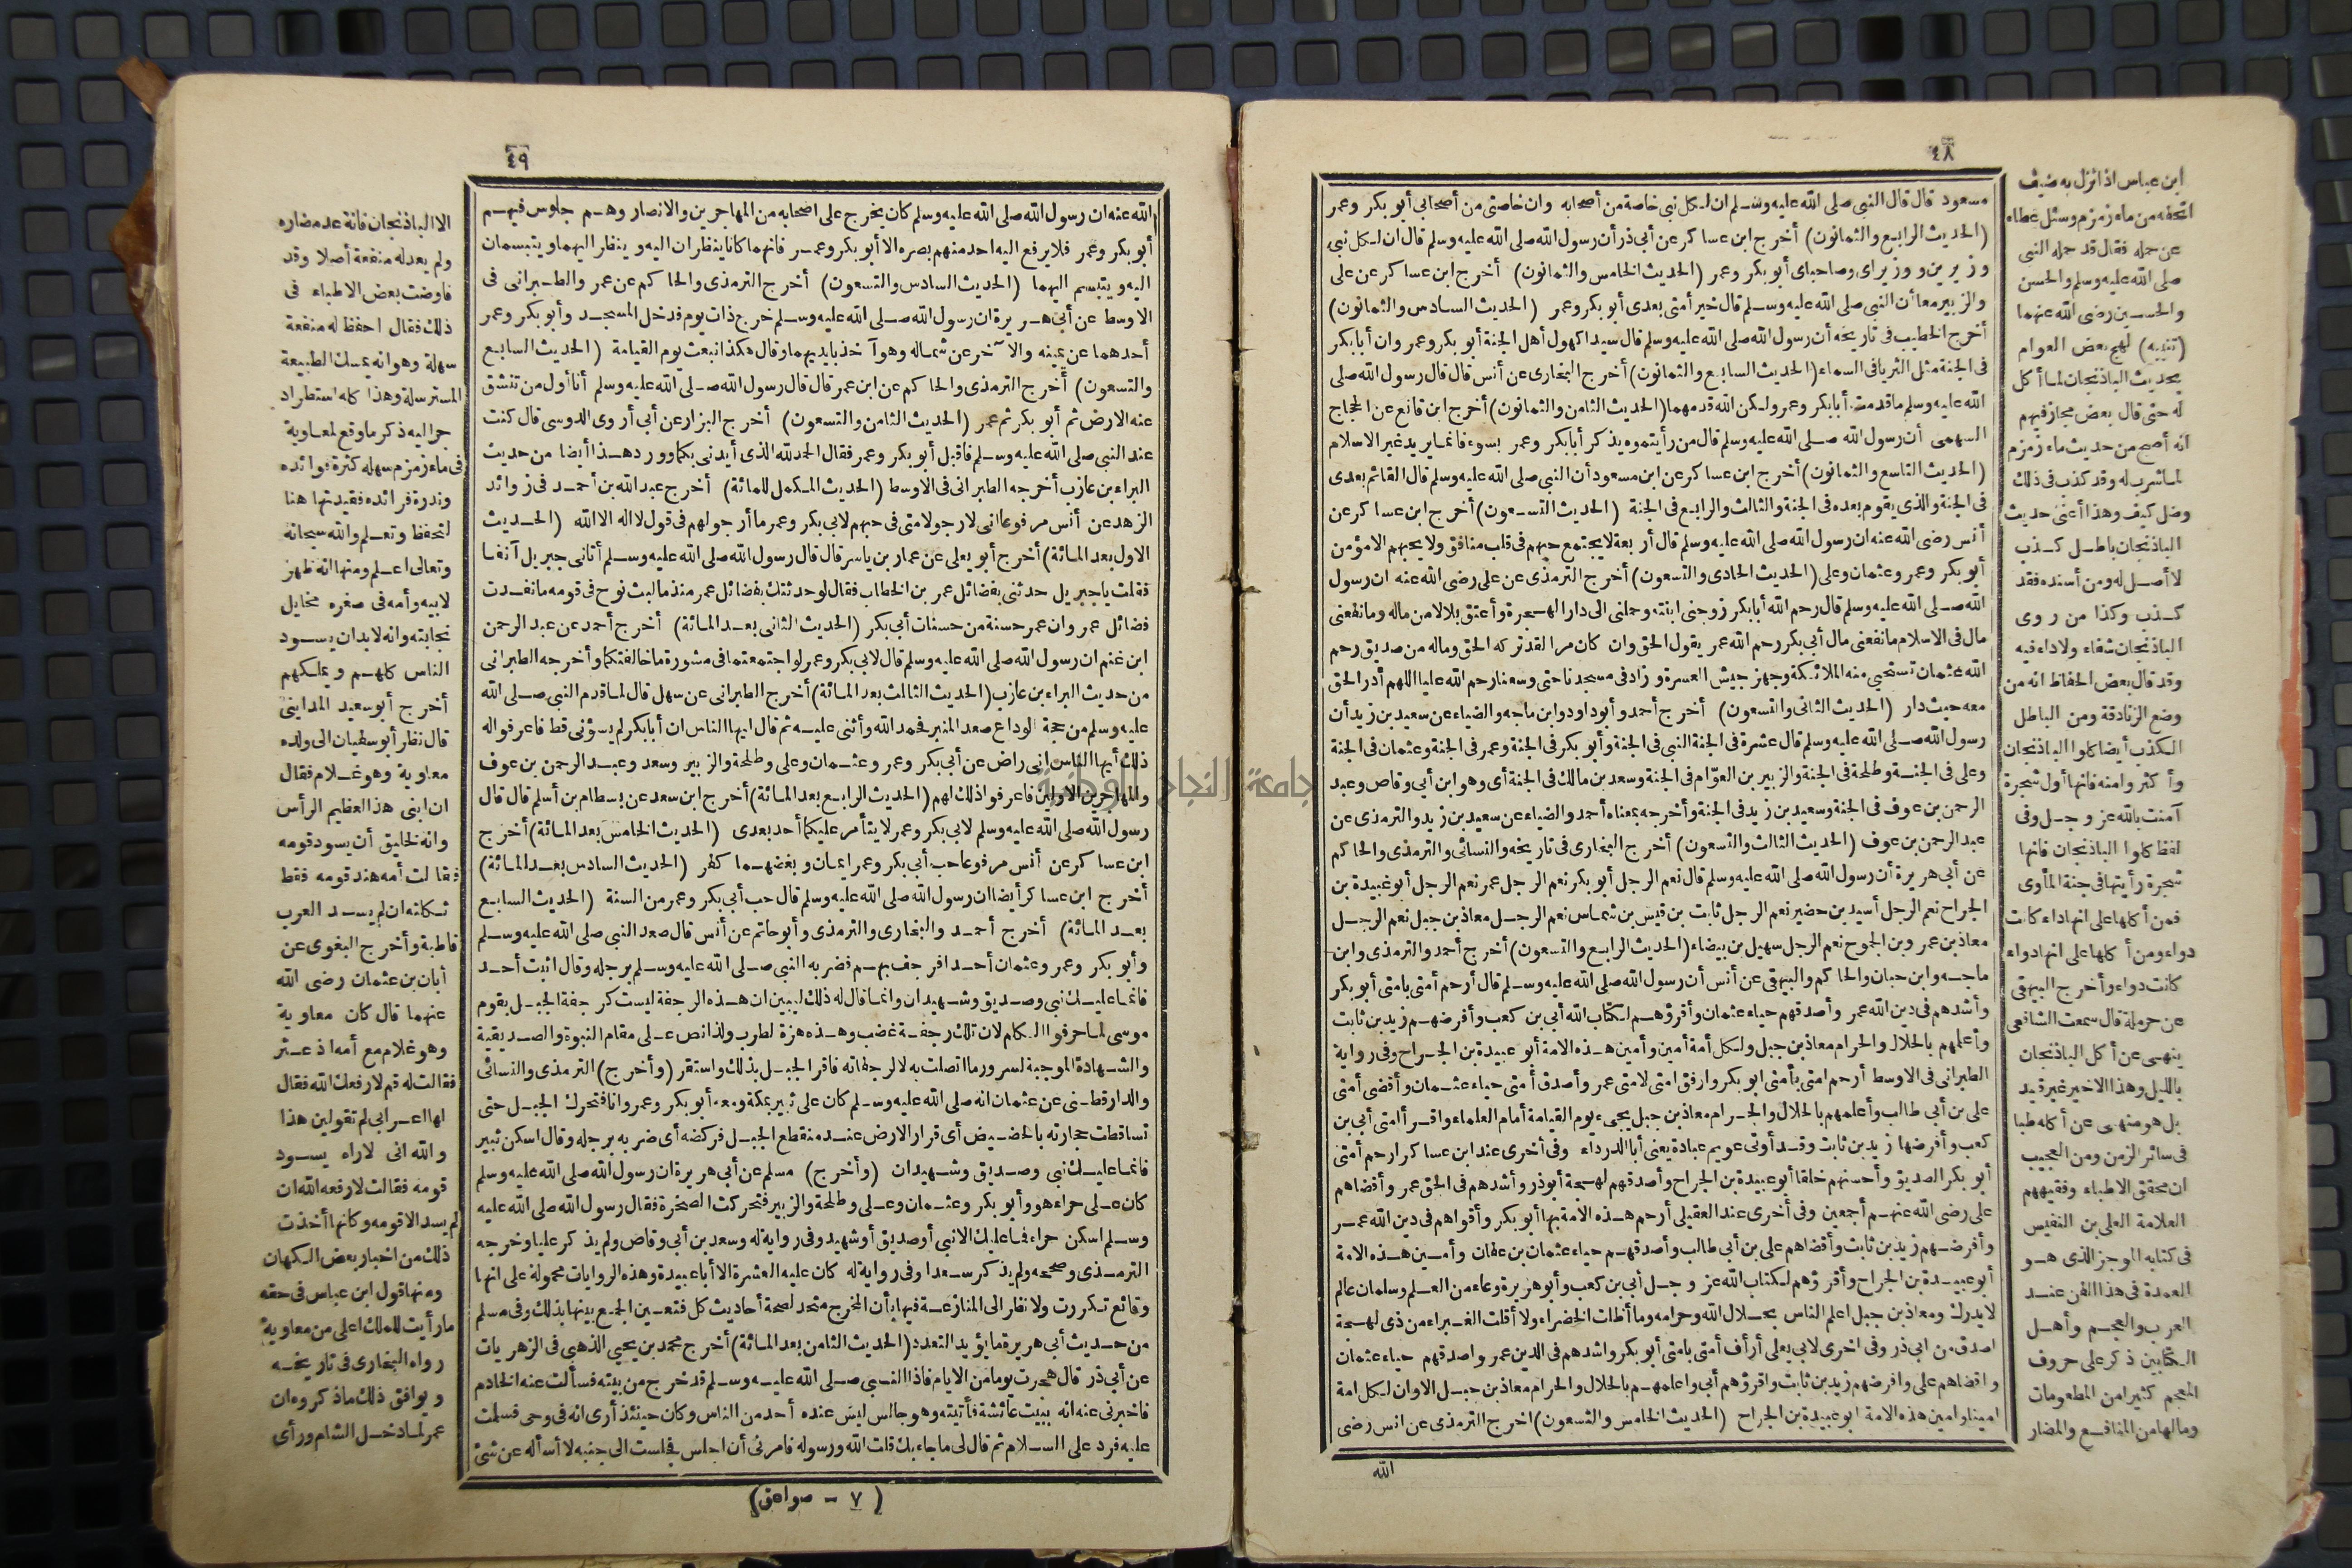 ٤٨
مسعود قال قال النبى صلى الله عليه وسلم ان لكل نبى خاصة من أصحابه وان خاصتى من أصحابى أبو بكر وعمر
(الحديث الرابع والثمانون) أخرج ابن عساكر عن أبى ذر أن رسول الله صلى الله عليه وسلم قال ان لكل نبى
وزيرين ووزيراى وصاحباى أبو بكر وعمر (الحديث الخامس والثمانون) أخرج ابن عساكر عن على
والزبير معا أن النبى صلى الله عليه وسلم قال خير أمتى بعدى أبو بكر وعمر (الحديث السادس والثمانون)
أخرج الخطيب فى تاريخه أن رسول الله صلى الله عليه وسلم قال سيدا كهول أهل الجنة أبو بكر وعمر وان أبا بكر
فى الجنة مثل الثريا فى السماء (الحديث السابع والثمانون) أخرج البخارى عن أنس قال قال رسول الله صلى
الله عليه وسلم ما قدمت أبا بكر وعمر ولكن الله قدمهما (الحديث الثامن والثمانون) أخرج ابن قانع عن الحجاج
السهمى أن رسول الله صلى الله عليه وسلم قال من رأيتموه يذكر أبا بكر وعمر بسوء فانما يريد غير الاسلام
(الحديث التاسع والثمانون) أخرج ابن عساكر عن ابن مسعود أن النبى صلى الله عليه وسلم قال القائم بعدى
فى الجنة والذى يقوم بعده فى الجنة والثالث والرابع فى الجنة (الحديث التسعون) أخرج ابن عساكر عن
أنس رضى الله عنه ان رسول الله صلى الله عليه وسلم قال أربعة لا يجتمع حبهم فى قلب منافق ولا يحبهم الا مؤمن
أبو بكر وعمر وعثمان وعلى (الحديث الحادى والتسعون) أخرج الترمذى عن على رضى الله عنه ان رسول
الله صلى الله عليه وسلم قال رحم الله أبا بكر زوجنى ابنته وحملنى الى دار الهجرة وأعتق بلالا من ماله وما نفعنى
مال فى الاسلام ما نفعنى مال أبى بكر رحم الله عمر يقول الحق وان كان مرا لقد تركه الحق وماله من صديق رحم
الله عثمان تستحيى منه الملائكة وجهز جيش العسرة وزاد فى مسجدنا حتى وسعنا رحم الله عليا اللهم أدر الحق
معه حيث دار (الحديث الثانى والتسعون) أخرج أحمد وأبو داود وابن ماجه والضياء عن سعيد بن زيد أن
رسول الله صلى الله عليه وسلم قال عشرة فى الجنة النبى فى الجنة وأبو بكر فى الجنة وعمر فى الجنة وعثمان فى الجنة
وعلى فى الجنة وطلحة فى الجنة والزبير بن العوّام فى الجنة وسعد بن مالك فى الجنة أى وهو ابن أبى وقاص وعبد
الرحمن بن عوف فى الجنة وسعيد بن زيد فى الجنة وأخرجه بمعناه أحمد والضياء عن سعيد بن زيد والترمذى عن
عبد الرحمن بن عوف (الحديث الثالث والتسعون) أخرج البخارى فى تاريخه والنسائى والترمذى والحاكم
عن أبى هريرة أن رسول الله صلى الله عليه وسلم قال نعم الرجل أبو بكر نعم الرجل عمر نعم الرجل أبو عبيدة بن
الجراح نعم الرجل أسيد بن حضير نعم الرجل ثابت بن قيس بن شماس نعم الرجل معاذ بن جبل نعم الرجل
معاذ بن عمرو بن الجموح نعم الرجل سهيل بن بيضاء (الحديث الرابع والتسعون) أخرج أحمد والترمذى وابن
ماجه وابن حبان والحاكم والبيهقى عن أنس أن رسول الله صلى الله عليه وسلم قال أرحم أمتى بامتى أبو بكر
وأشدهم فى دين الله عمر وأصدقهم حياء عثمان وأقرؤهم لكتاب الله أبى بن كعب وأفرضهم زيد بن ثابت
وأعلمهم بالحلال والحرام معاذ بن جبل ولكل أمة أمين وأمين هذه الامة أبو عبيدة بن الجراح وفى رواية
الطبرانى فى الاوسط أرحم امتى بأمتى ابو بكر وارفق امتى لامتى عمر وأصدق أمتى حياء عثمان وأقضى أمتى
على بن أبى طالب وأعلمهم بالحلال والحرام معاذ بن جبل يجىء يوم القيامة أمام العلماء واقرأ امتى أبى بن
كعب وأفرضها زيد بن ثابت وقد أوتى عويمر عبادة يعنى أبا الدرداء وفى أخرى عند ابن عساكر ارحم أمتى
أبو بكر الصديق وأحسنهم خلقا أبو عبيدة بن الجراح وأصدقهم لهجة أبو ذر وأشدهم فى الحق عمر وأقضاهم
على رضى الله عنهم أجمعين وفى أخرى عند العقيلى أرحم هذه الامة بها أبو بكر وأقواهم فى دين الله عمر
وأفرضهم زيد بن ثابت وأقضاهم على بن أبى طالب وأصدقهم حياء عثمان بن عفان وأمين هذه الامة
أبو عبيدة بن الجراح وأقرؤهم لكتاب الله عز وجل أبى بن كعب وأبو هريرة وعاء من العلم وسلمان عالم
لا يدرك ومعاذ بن جبل اعلم الناس بحلال الله وحرامه وما أظلت الخضراء ولا أقلت الغبراء من ذى لهجة
اصدق من ابى ذر وفى اخرى لابى يعلى أرأف أمتى بامتى أبو بكر واشدهم فى الدين عمر واصدقهم حياء عثمان
واقضاهم على وافرضهم زيد بن ثابت واقرؤهم أبى واعلمهم بالحلال والحرام معاذ بن جبل الاوان لكل امة
امينا وامين هذه الامة ابو عبيدة بن الجراح (الحديث الخامس والتسعون) اخرج الترمذى عن انس رضى
الله
ابن عباس اذا نزل به ضيف
اتحفه من ماء زمزم وسئل عطاء
عن حمله فقال قد حمله النبى
صلى الله عليه وسلم والحسن
والحسين رضى الله عنهما
(تنبيه) لهج بعض العوام
بحديث الباذنجان لما أكل
له حتى قال بعض مجازفيهم
انه أصح من حديث ماء زمزم
لما شرب له وقد كذب فى ذلك
وضل كيف وهذا أعنى حديث
الباذنجان باطل كذب
لا أصل له ومن أسنده فقد
كذب وكذا من روى
الباذنجان شفاء ولا داء فيه
وقد قال بعض الحفاظ انه من
وضع الزنادقة ومن الباطل
الكذب أيضا كلوا الباذنجان
وأكثروا منه فانها أول شجرة
آمنت بالله عز وجل وفى
لفظ كلوا الباذنجان فانها
شجرة رأيتها فى جنة المأوى
فمن أكلها على انها داء كانت
دواء ومن أكلها على انها دواء
كانت دواء وأخرج البيهقى
عن حرملة قال سمعت الشافعى
ينهى عن أكل الباذنجان
بالليل وهذا الاخير غير قيد
بل هو منهى عن أكله طبا
فى سائر الزمن ومن العجيب
ان محقق الاطباء وفقيههم
العلامة العلى بن النفيس
فى كتابه الموجز الذى هو
العمدة فى هذا الفن عند
العرب والعجم وأهل
الكتابين ذكر على حروف
المعجم كثيرا من المطعومات
وما لها من المنافع والمضار
٤٩
الله عنه ان رسول الله صلى الله عليه وسلم كان يخرج على اصحابه من المهاجرين والانصار وهم جلوس فيهم
أبو بكر وعمر فلا يرفع اليه احد منهم بصره الا أبو بكر وعمر فانهما كانا ينظران اليه وينظر اليهما ويتبسمان
اليه ويتبسم اليهما (الحديث السادس والتسعون) أخرج الترمذى والحاكم عن عمر والطبرانى فى
الاوسط عن أبى هريرة ان رسول الله صلى الله عليه وسلم خرج ذات يوم فدخل المسجد وأبو بكر وعمر
أحدهما عن يمينه والآخر عن شماله وهو آخذ بايديهما وقال هكذا نبعث يوم القيامة (الحديث السابع
والتسعون) أخرج الترمذى والحاكم عن ابن عمر قال قال رسول الله صلى الله عليه وسلم أنا أول من تنشق
عنه الارض ثم أبو بكر ثم عمر (الحديث الثامن والتسعون) أخرج البزار عن أبى أروى الدوسى قال كنت
عند النبى صلى الله عليه وسلم فاقبل أبو بكر وعمر فقال الحمد لله الذى أيدنى بكما وورد هذا أيضا من حديث
البراء بن عازب أخرجه الطبرانى فى الاوسط (الحديث المكمل للمائة) أخرج عبد الله بن أحمد فى زوائد
الزهد عن أنس مرفوعا انى لارجو لامتى فى حبهم لابى بكر وعمر ما أرجو لهم فى قول لا اله الا الله (الحديث
الاول بعد المائة) أخرج أبو يعلى عن عمار بن ياسر قال قال رسول الله صلى الله عليه وسلم أتانى جبريل آنفا
فقلت يا جبريل حدثنى بفضائل عمر بن الخطاب فقال لو حدثتك بفضائل عمر منذ ما لبث نوح فى قومه ما نفدت
فضائل عمر وان عمر حسنة من حسنات أبى بكر (الحديث الثانى بعد المائة) أخرج أحمد عن عبد الرحمن
ابن غنم ان رسول الله صلى الله عليه وسلم قال لابى بكر وعمر لو اجتمعتما فى مشورة ما خالفتكما وأخرجه الطبرانى
من حديث البراء بن عازب (الحديث الثالث بعد المائة) أخرج الطبرانى عن سهل قال لما قدم النبى صلى الله
عليه وسلم من حجة الوداع صعد المنبر فحمد الله وأثنى عليه ثم قال ايها الناس ان أبا بكر لم يسؤنى قط فاعرفوا له
ذلك أيها الناس انى راض عن أبى بكر وعمر وعثمان وعلى وطلحة والزبير وسعد وعبد الرحمن بن عوف
والمهاجرين الاولين فاعرفوا ذلك لهم (الحديث الرابع بعد المائة) أخرج ابن سعد عن بسطام بن أسلم قال قال
رسول الله صلى الله عليه وسلم لابى بكر وعمر لا يتأمر عليكما أحد بعدى (الحديث الخامس بعد المائة) أخرج
ابن عساكر عن أنس مرفوعا حب أبى بكر وعمر ايمان وبغضهما كفر (الحديث السادس بعد المائة)
أخرج ابن عساكر أيضا ان رسول الله صلى الله عليه وسلم قال حب أبى بكر وعمر من السنة (الحديث السابع
بعد المائة) أخرج أحمد والبخارى والترمذى وأبو حاتم عن أنس قال صعد النبى صلى الله عليه وسلم
وأبو بكر وعمر وعثمان أحدا فرجف بهم فضربه النبى صلى الله عليه وسلم برجله وقال اثبت أحد
فانما عليك نبى وصديق وشهيدان وانما قال له ذلك ليبين ان هذه الرجفة ليست كرجفة الجبل بقوم
موسى لما حرفوا الكلم لان تلك رجفة غضب وهذه هزة لطرب ولذا نص على مقام النبوة والصديقية
والشهادة الموجبة لسرور ما اتصلت به لا لرجفانه فاقر الجبل بذلك واستقر (وأخرج) الترمذى والنسائى
والدارقطنى عن عثمان انه صلى الله عليه وسلم كان على ثبير بمكة ومعه أبو بكر وعمر وانا فتحرك الجبل حتى
تساقطت حجارته بالحضيض أى قرار الارض عند منقطع الجبل فركضه أى ضربه برجله وقال اسكن ثبير
فانما عليك نبى وصديق وشهيدان (وأخرج) مسلم عن أبى هريرة ان رسول الله صلى الله عليه وسلم
كان على حراء هو وأبو بكر وعثمان وعلى وطلحة والزبير فتحركت الصخرة فقال رسول الله صلى الله عليه
وسلم اسكن حراء فما عليك الا نبى أو صديق أو شهيد وفى رواية له وسعد بن أبى وقاص ولم يذكر عليا وخرجه
الترمذى وصححه ولم يذكر سعدا وفى رواية له كان عليه العشرة الا أبا عبيدة وهذه الروايات محمولة على انها
وقائع تكررت ولا نظر الى المنازعة فيها بأن المخرج متحد لصحة أحاديث كل فتعين الجمع بينها بذلك وفى مسلم
من حديث أبى هريرة ما يؤيد التعدد (الحديث الثامن بعد المائة) أخرج محمد بن يحيى الذهبى فى الزهريات
عن أبى ذر قال هجرت يوما من الايام فاذا النبى صلى الله عليه وسلم قد خرج من بيته فسألت عنه الخادم
فاخبرنى عنه انه ببيت عائشة فأتيته وهو جالس ليس عنده أحد من الناس وكان حينئذ أرى انه فى وحى فسلمت
عليه فرد على السلام ثم قال لى ما جاء بك قلت الله ورسوله فامرنى أن اجلس فجلست الى جنبه لا أسأله عن شئ
(٧ - صواعق)
الا الباذنجان فانه عد مضاره
ولم يعد له منفعة أصلا وقد
فاوضت بعض الاطباء فى
ذلك فقال احفظ له منفعة
سهلة وهو انه يمسك الطبيعة
المسترسلة وهذا كله استطراد
جر اليه ذكر ما وقع لمعاوية
فى ماء زمزم سهله كثرة فوائده
وندرة فرائده فقيدتها هنا
لتحفظ وتعلم والله سبحانه
وتعالى اعلم ومنها انه ظهر
لابيه وأمه فى صغره مخايل
نجابته وانه لابد ان يسود
الناس كلهم ويملكهم
أخرج أبو سعيد المداينى
قال نظر أبو سفيان الى ولده
معاوية وهو غلام فقال
ان ابنى هذا العظيم الرأس
وانه لخليق أن يسود قومه
فقالت أمه هند قومه فقط
ثكلته ان لم يسد العرب
قاطبة وأخرج البغوى عن
أبان بن عثمان رضى الله
عنهما قال كان معاوية
وهو غلام مع أمه اذ عثر
فقالت له قم لا رفعك الله فقال
لها اعرابى لم تقولين هذا
والله انى لاراه يسود
قومه فقالت لا رفعه الله ان
لم يسد الا قومه وكأنها أخذت
ذلك من اخبار بعض الكهان
ومنها قول ابن عباس فى حقه
ما رأيت للملك اعلى من معاوية
رواه البخارى فى تاريخه
ويوافق ذلك ما ذكروه ان
عمر لما دخل الشام ورأى
جامعة النجاح الوطنية